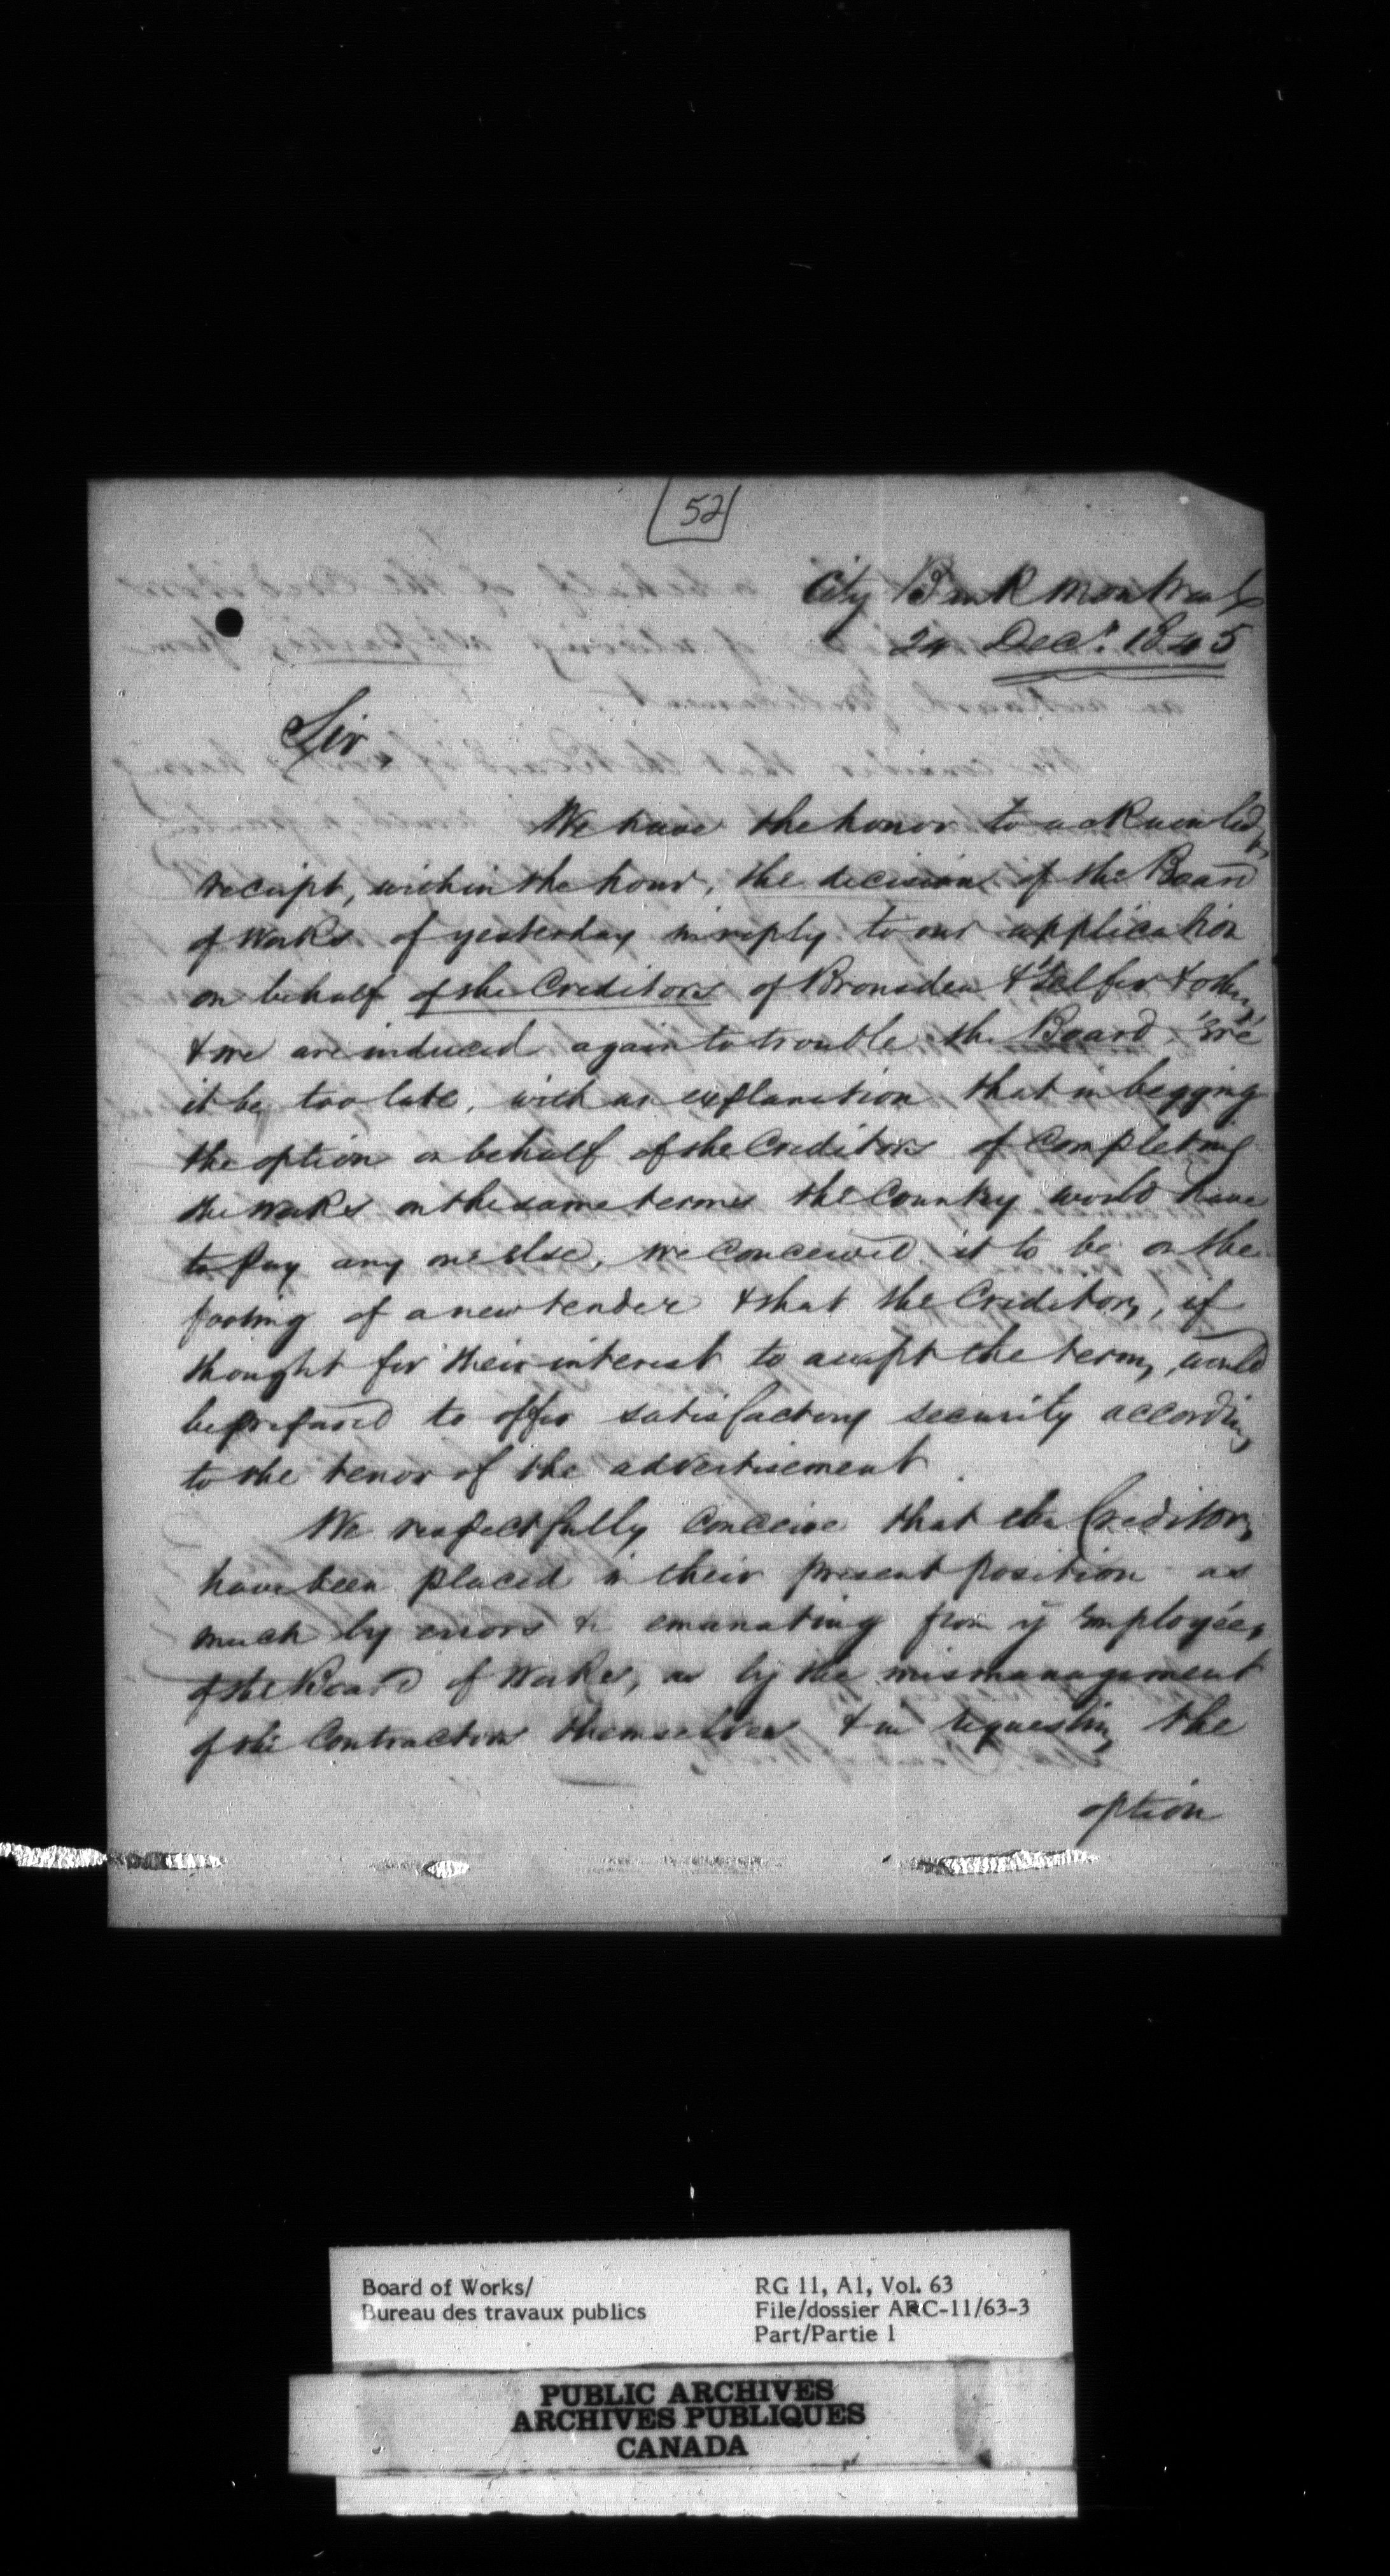 52
City Bank Montreal
24 Decr. 1845
Sir
We have the honor to acknowledge
receipt, within the hour, the decision of the Board
of Works of yesterday in reply to our application
on behalf of the Creditors of Bronsden & Telfer & others,
& we are induced again to trouble the Board, 'ere
it be too late, with an explanation that in begging
the option on behalf of the Creditors of completing
the works on the same terms the Country would have
to pay any one else, we conceived it to be on the
footing of a new tender & that the Creditors, if
thought for their interest to accept the terms, would
be prepared to offer satisfactory security according
to the tenor of the advertisement
We respectfully conceive that the Creditors,
have been placed in their present position as
much by errors &c emanating from ye Employées
of the Board of Works, as by the mismanagement
of the Contractors themselves & in requesting the
option
Board of Works/
Bureau des travaux publics
RG 11, A1, Vol. 63
File/dossier ARC-11/63-3
Part/Partie 1
PUBLIC ARCHIVES
ARCHIVES PUBLIQUES
CANADA